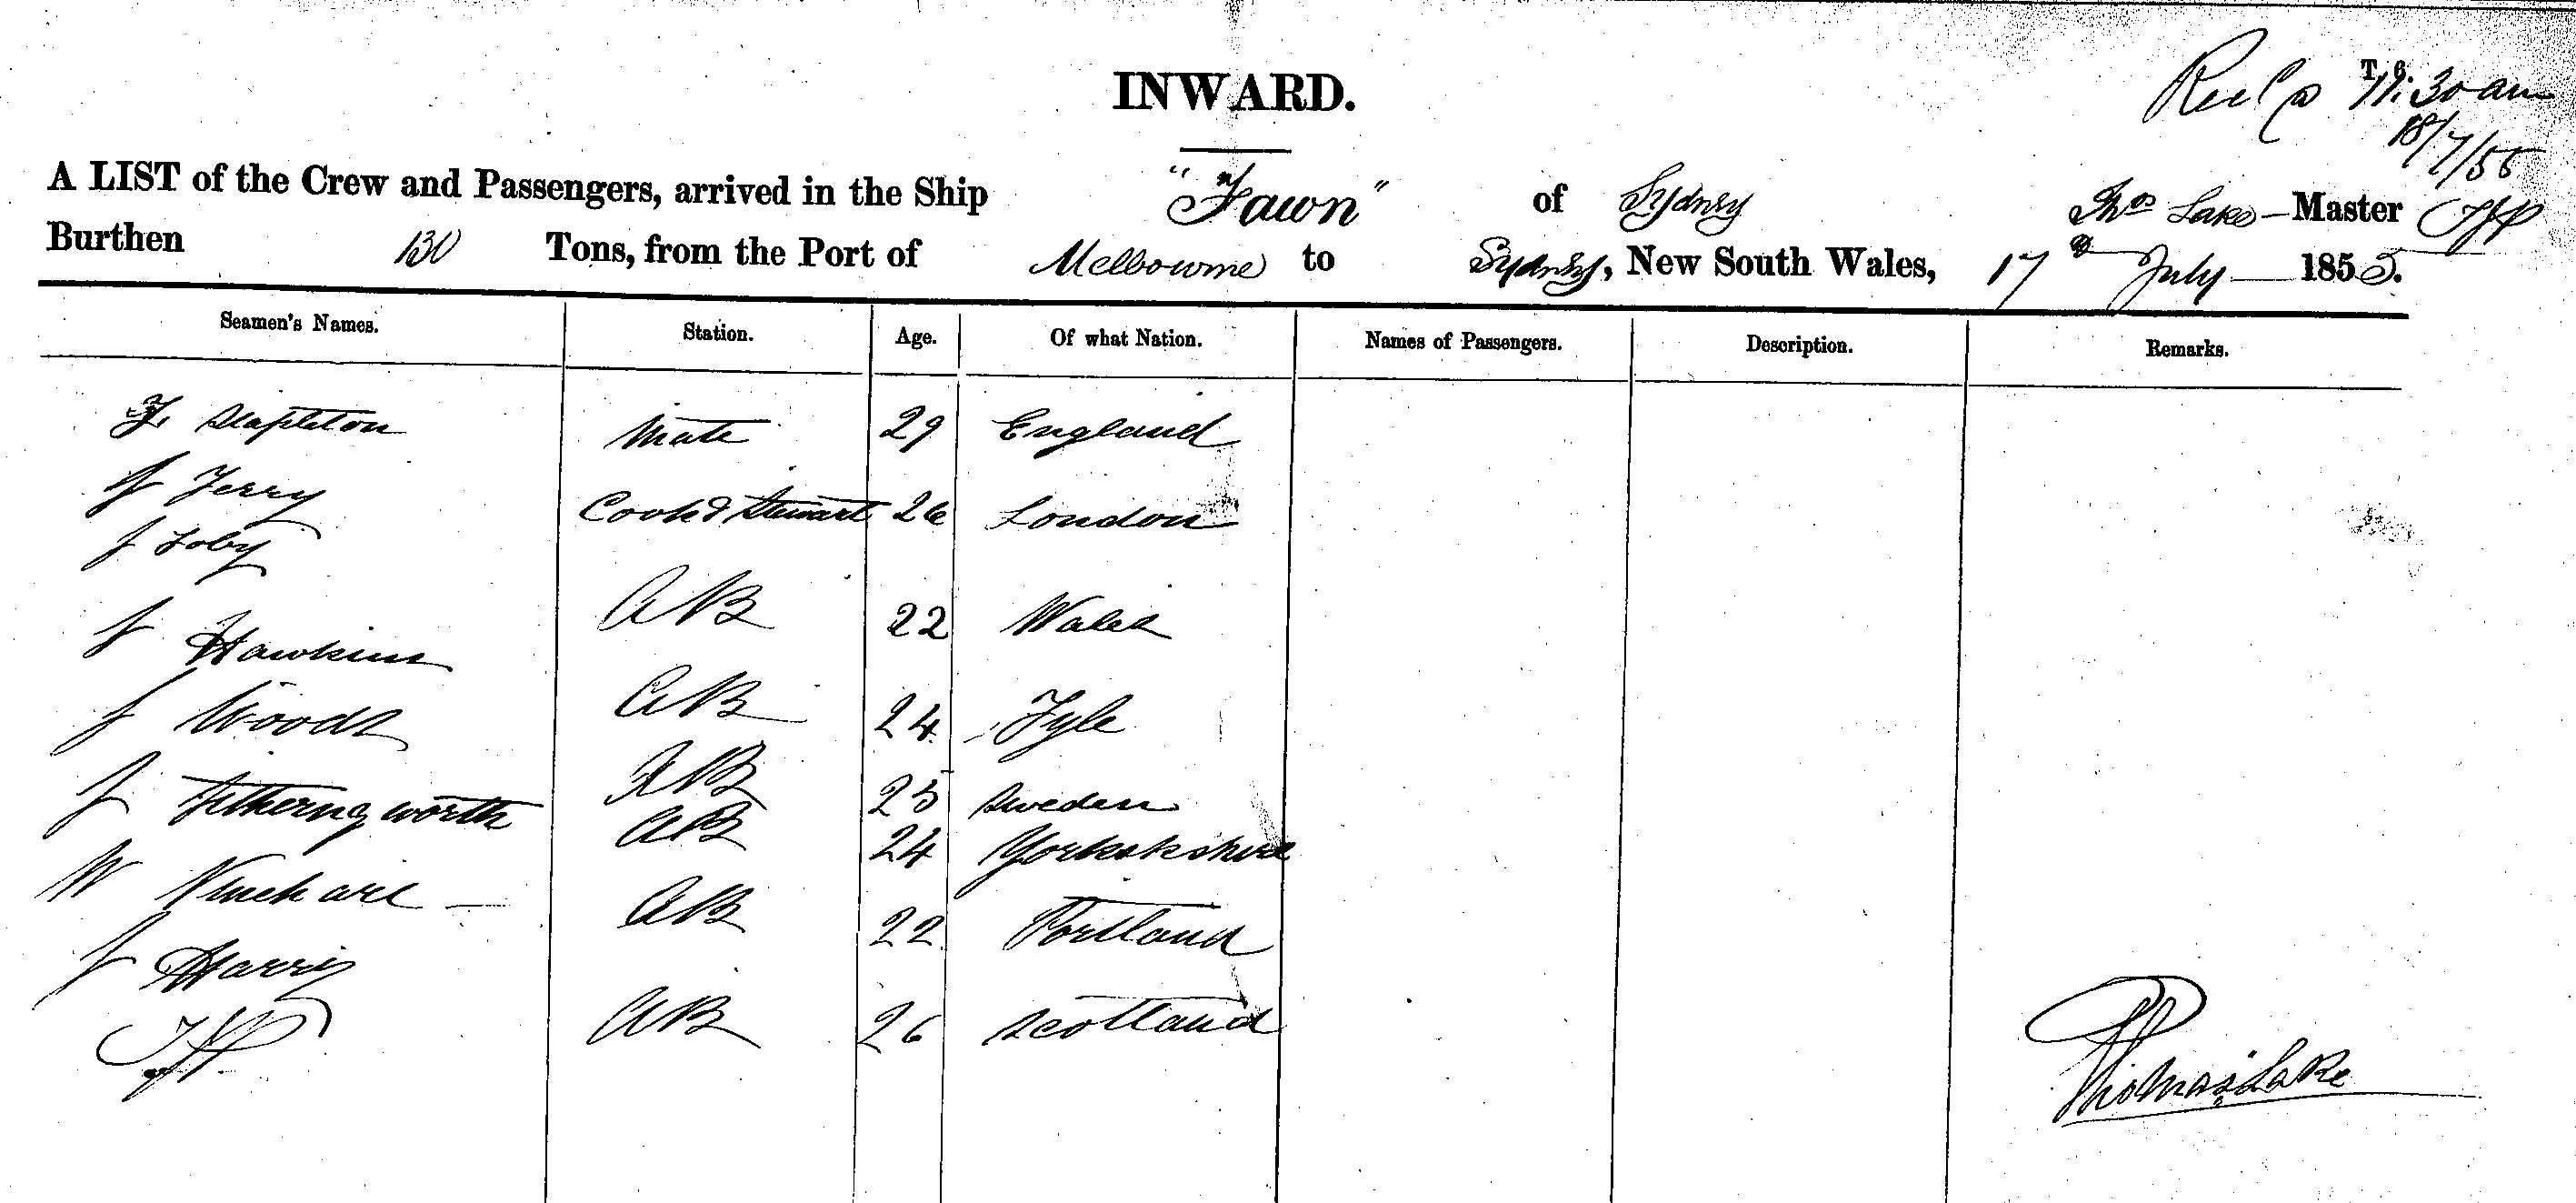 INWARD.
T. 6.
11.30 am
18/7/55
A LIST of the Crew and Passengers, arrived in the Ship "Fawn" of Sydney Thos Lake - Master
Burthen 130 Tons, from the Port of Melbourne to Sydney, New South Wales, 17th July 1855.
Seamen's Names. Station. Age. Of what Nation. Names of Passengers. Description. Remarks.
F. Stapleton Mate 29 England
J Terry Cook & Stewart 26 London
J Toby AB 22 Wales
J Hawkins AB 24 Fyle
J Woods AB 25 Sweden
J Fetheringworth AB 24 Yorkskshire
W AB 22 Portland
J Harris AB 26 Scotland
Thomas Lake